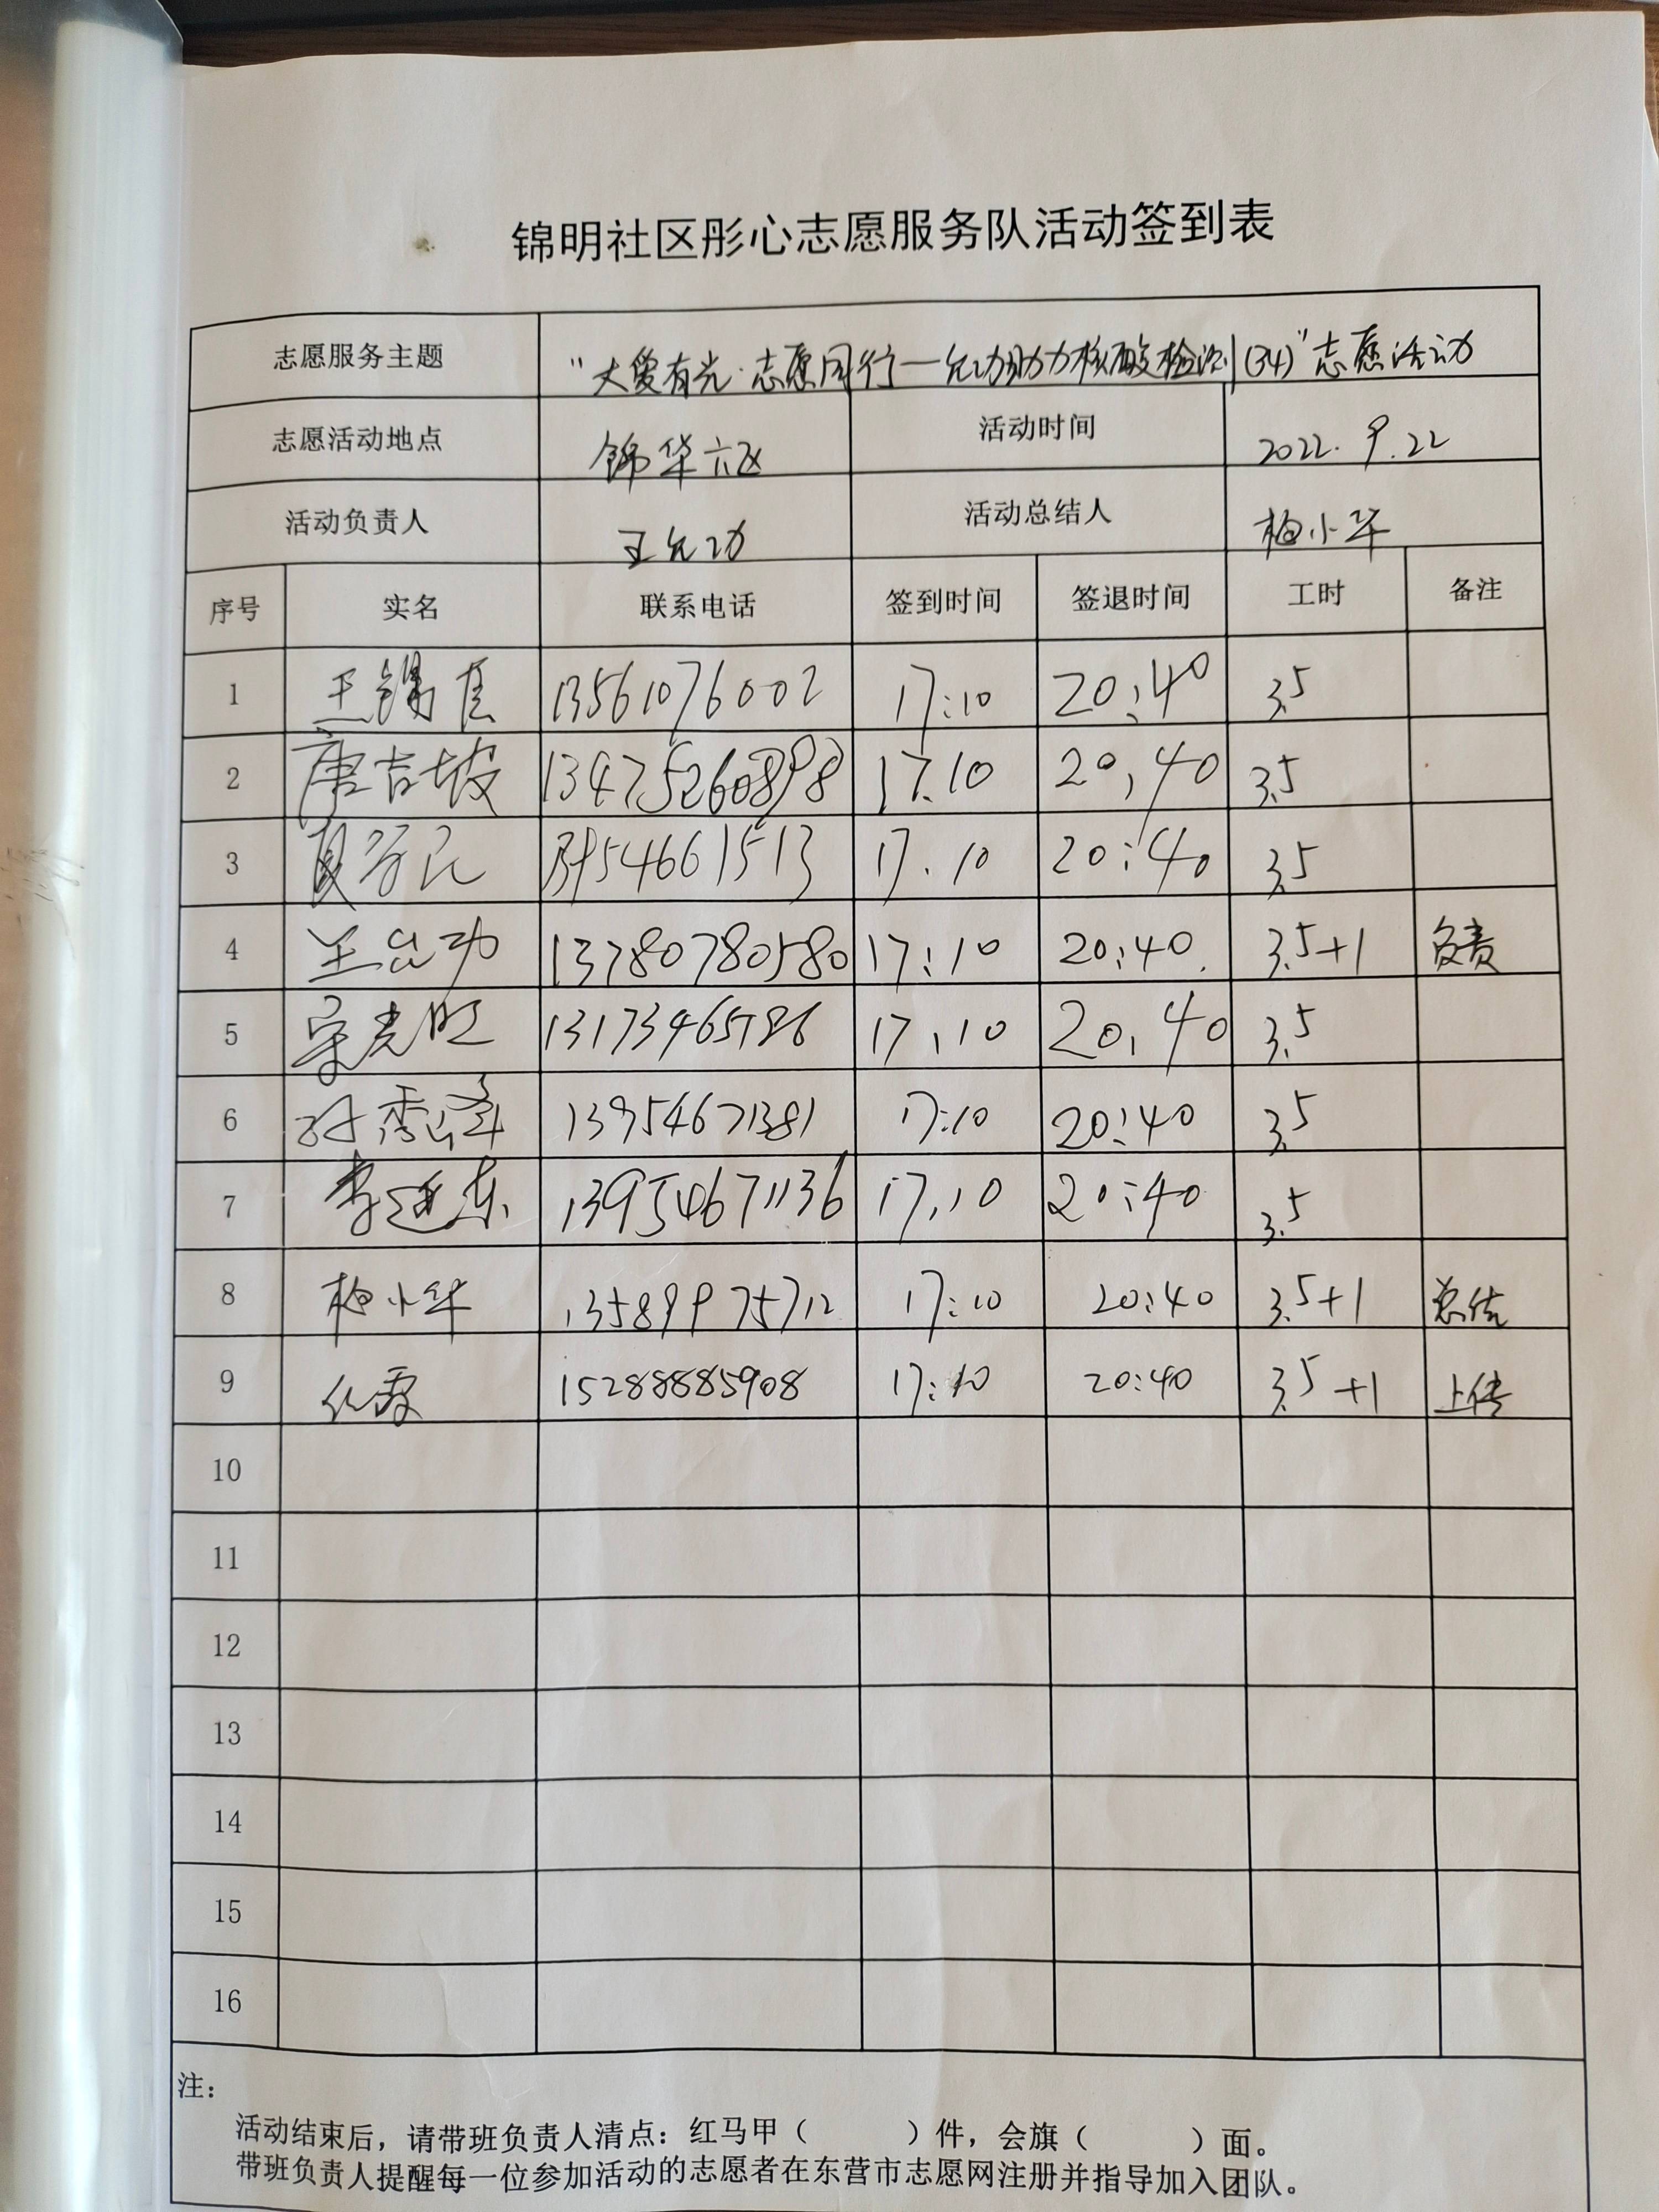 锦明社区彤心志愿服务队活动签到表
志愿服务主题 “大爱有光·志愿同行—允功助力核酸检测(34)”志愿活动
志愿活动地点 锦华六区 活动时间 2022.9.22
活动负责人 王允功 活动总结人 梅小华
序号 实名 联系电话 签到时间 签退时间 工时 备注
1 王锡臣 13561076002 17:10 20:40 3.5
2 唐吉坡 13475260898 17.10 20:40 3.5
3 54661513 17.10 20:40 3.5
4 王允功 13780780580 17:10 20:40 3.5+1 负责
5 宋光旺 17:10 20:40 3.5
6 孙秀峰 13954671381 17:10 20:40 3.5
7 李延东 13954671136 17:10 20:40 3.5
8 梅小华 13589975712 17:10 20:40 3.5+1 总结
9 仇霞 15288885908 17:10 20:40 3.5+1 上传
10
11
12
13
14
15
16
注：
活动结束后，请带班负责人清点：红马甲（ ）件，会旗（ ）面。
带班负责人提醒每一位参加活动的志愿者在东营市志愿网注册并指导加入团队。